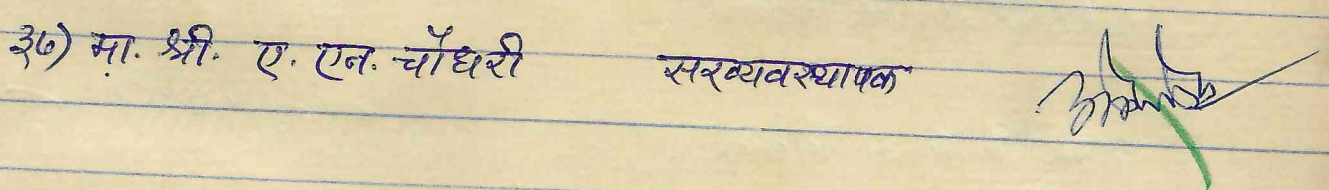 ३७) मा. श्री. ए. एन. चौधरी सरव्यवस्थापक